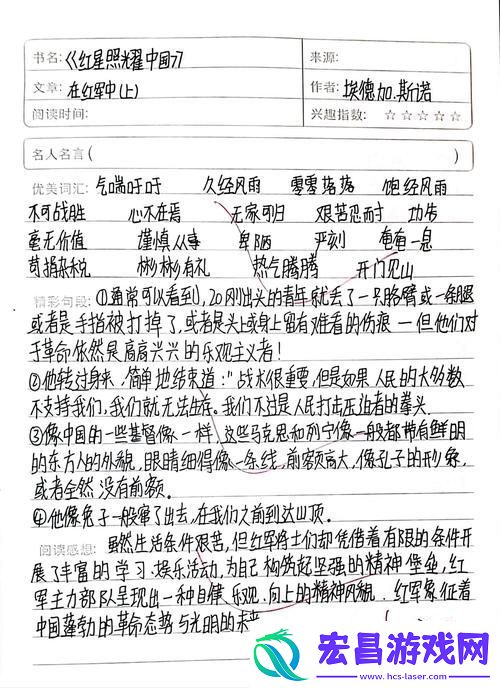 书名:《红星照耀中国》 来源:
文章: 在红军中(上) 作者: 埃德加.斯诺
阅读时间: 兴趣指数: ☆ ☆ ☆ ☆ ☆
名人名言( )
优美词汇: 气喘吁吁 久经风雨 零零落落 饱经风雨
不可战胜 心不在焉 无家可归 艰苦忍耐 功伟
毫无价值 谨慎从事 卑陋 严刻 奄奄一息
苛捐杂税 彬彬有礼 热气腾腾 开门见山
精彩句段: ①通常可以看到,20刚出头的青年就丢了一只胳臂或一条腿
或者是手指被打掉了,或者是头上或身上留有难看的伤痕—但他们对
于革命依然是高高兴兴的乐观主义者!
②他转过身来,简单地结束道:"战术很重要,但是如果人民的大多数
不支持我们,我们就无法生存。我们不过是人民打击压迫者的拳头.
③像中国的一些基督像一样,这些马克思和列宁像一般都带有鲜明
的东方人的外貌,眼睛细得像一条线,前额高大,像孔子的形象,
或者全然没有前额。
④他像兔子一般窜了出去,在我们之前到达山顶。
阅读感想: 虽然生活条件艰苦,但红军将士们却凭借着有限的条件开
展了丰富的学习.娱乐活动,为自己构筑起坚强的精神堡垒,红
军主力部队呈现出一种自律、乐观、向上的精神风貌。红军象征着
中国蓬勃的革命态势与光明的未
宏昌游戏网
www.hcs-laser.com